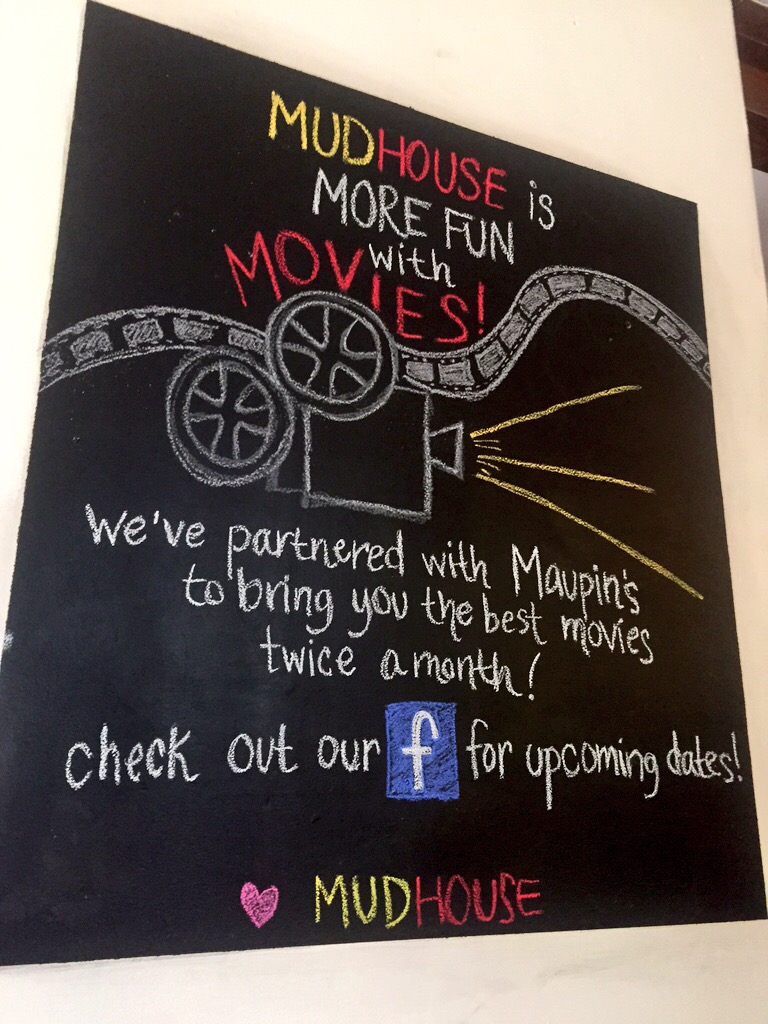 MUDHOUSE is
MORE FUN
with
MOVIES!
We've partnered with Maupin's
to bring you the best movies
twice a month!
check out our f for upcoming dates!
MUDHOUSE